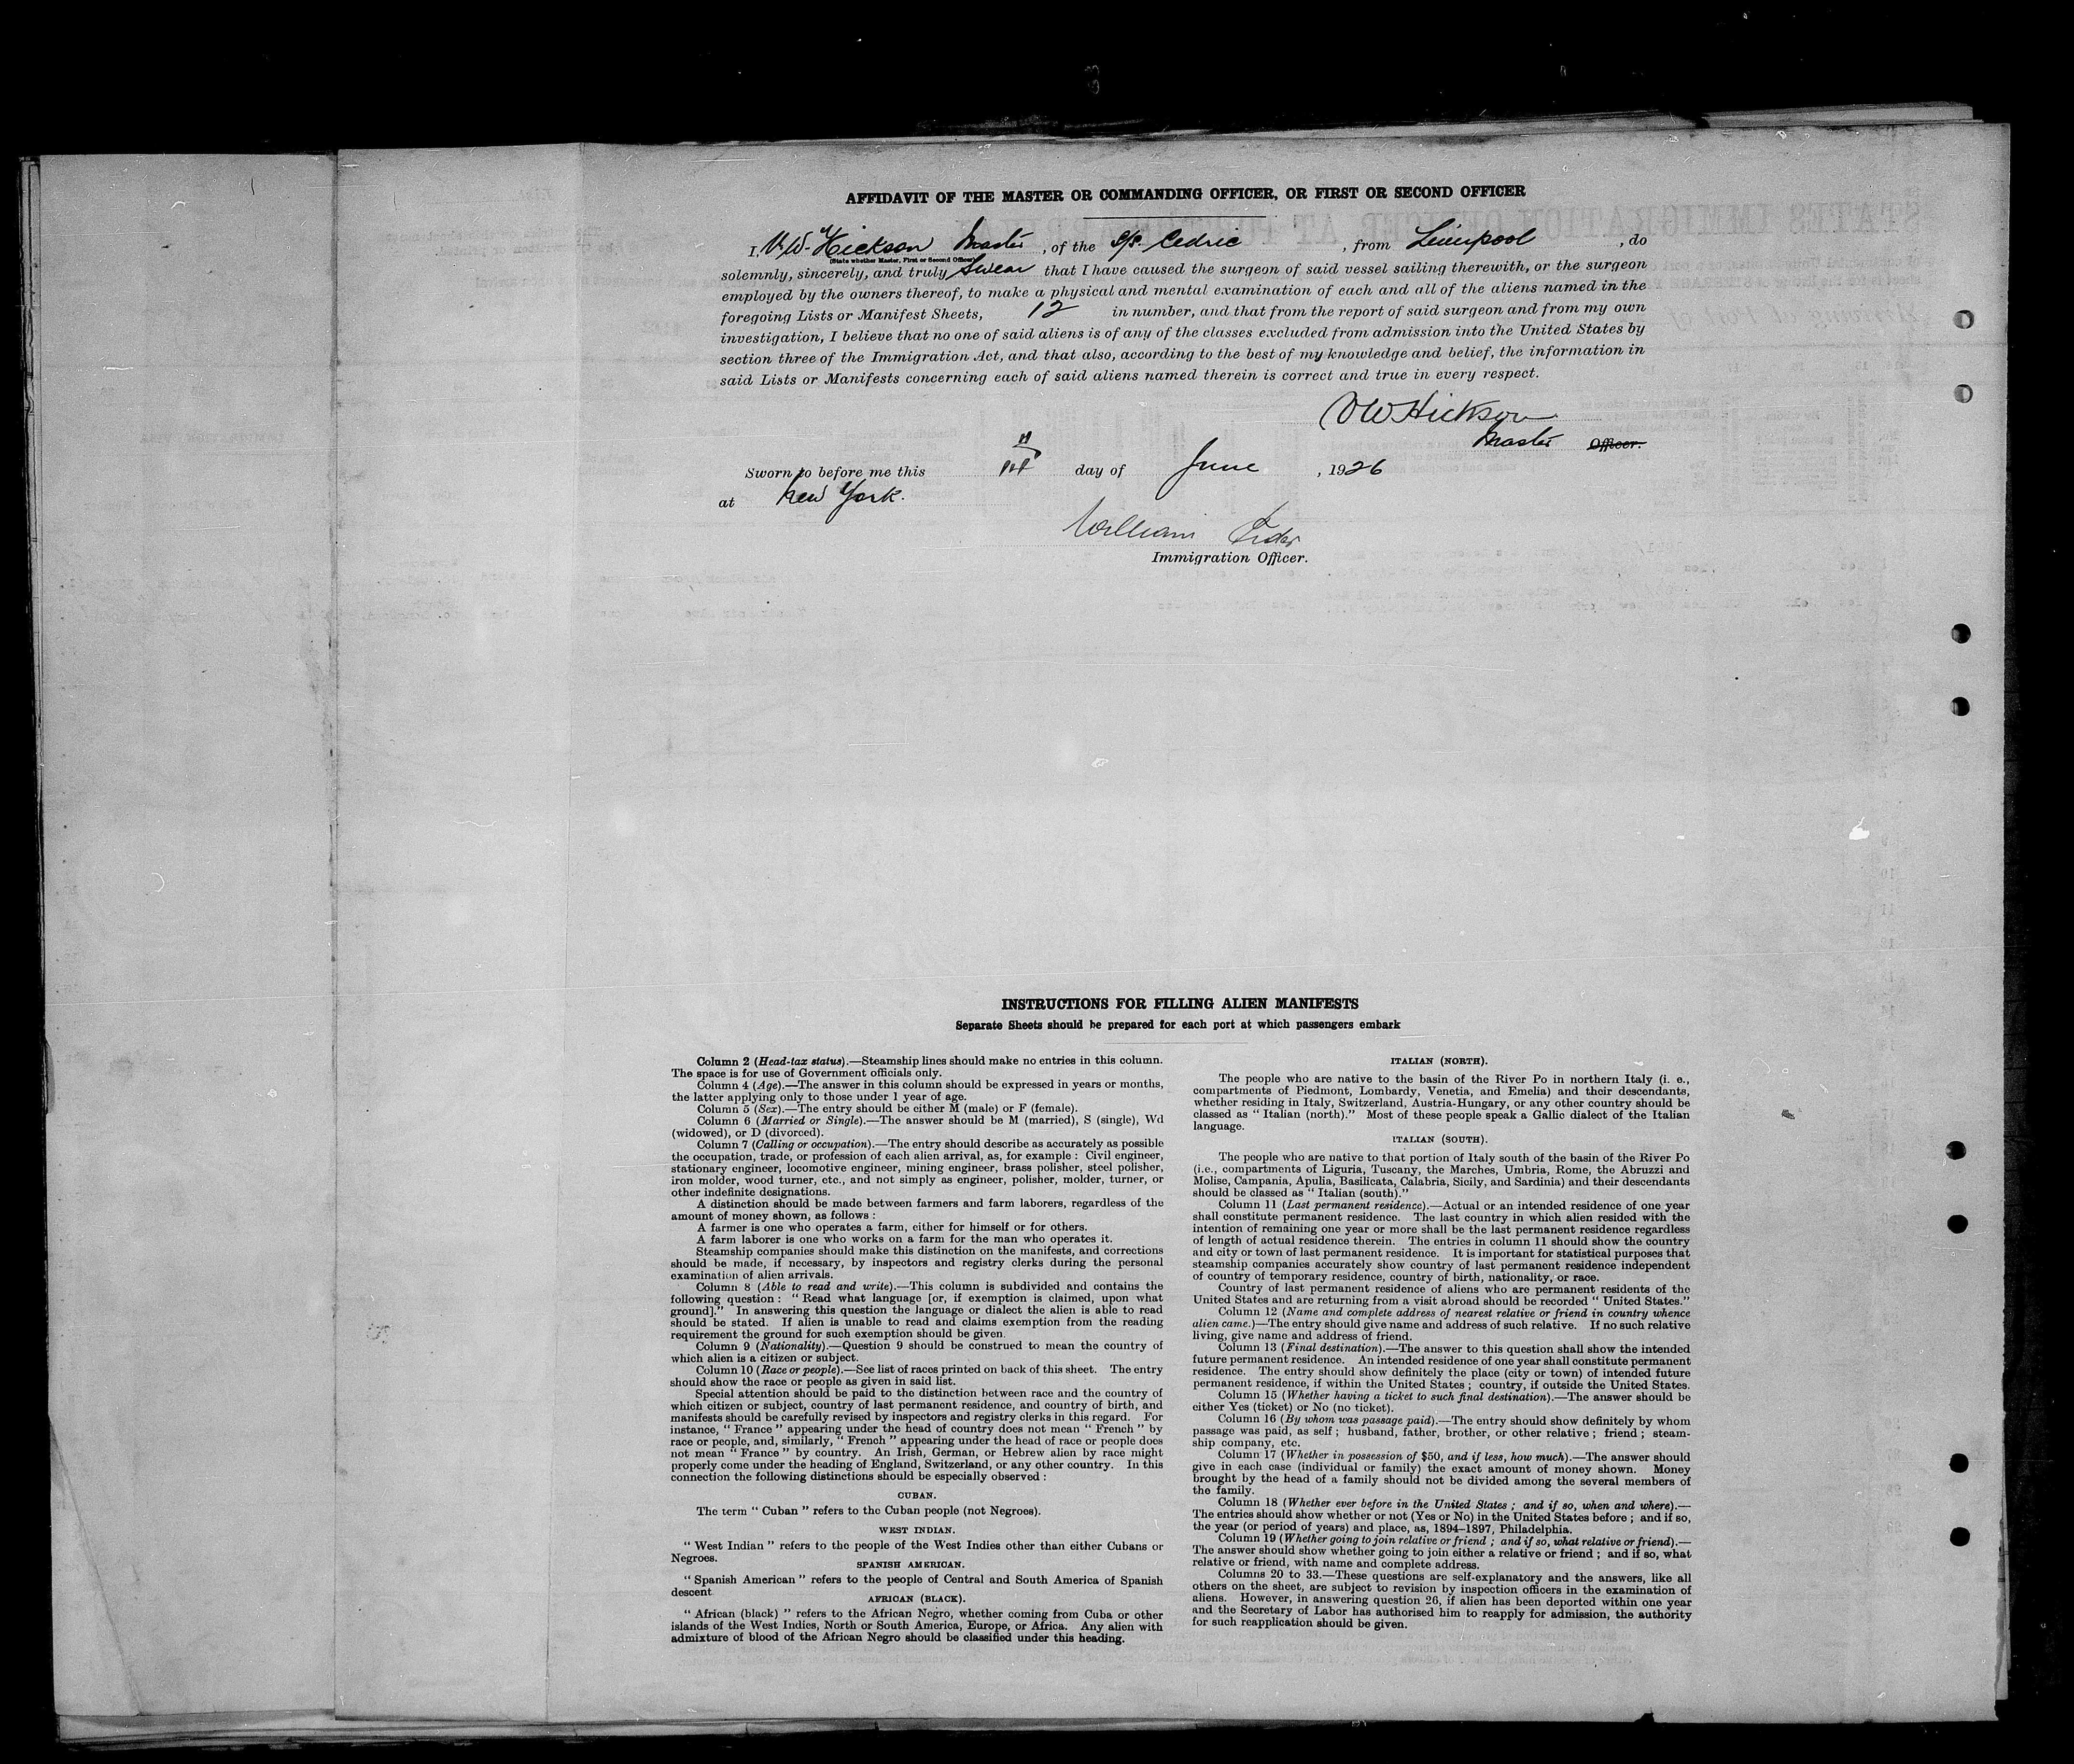 AFFIDAVIT OF THE MASTER OR COMMANDING OFFICER, OR FIRST OR SECOND OFFICER
I, V. W. Hickson Master, of the S/S. Cedric, from Liverpool, do
(State whether Master, First or Second Officer)
solemnly, sincerely, and truly Swear that I have caused the surgeon of said vessel sailing therewith, or the surgeon
employed by the owners thereof, to make a physical and mental examination of each and all of the aliens named in the
foregoing Lists or Manifest Sheets, 12 in number, and that from the report of said surgeon and from my own
investigation, I believe that no one of said aliens is of any of the classes excluded from admission into the United States by
section three of the Immigration Act, and that also, according to the best of my knowledge and belief, the information in
said Lists or Manifests concerning each of said aliens named therein is correct and true in every respect.
V W Hickson
Master Officer.
Sworn to before me this day of June, 1926
at New York.
William
Immigration Officer.
INSTRUCTIONS FOR FILLING ALIEN MANIFESTS
Separate Sheets should be prepared for each port at which passengers embark
Column 2 (Head-tax status).—Steamship lines should make no entries in this column.
The space is for use of Government officials only.
Column 4 (Age).—The answer in this column should be expressed in years or months,
the latter applying only to those under 1 year of age.
Column 5 (Sex).—The entry should be either M (male) or F (female).
Column 6 (Married or Single).—The answer should be M (married), S (single), Wd
(widowed), or D (divorced).
Column 7 (Calling or occupation).—The entry should describe as accurately as possible
the occupation, trade, or profession of each alien arrival, as, for example : Civil engineer,
stationary engineer, locomotive engineer, mining engineer, brass polisher, steel polisher,
iron molder, wood turner, etc., and not simply as engineer, polisher, molder, turner, or
other indefinite designations.
A distinction should be made between farmers and farm laborers, regardless of the
amount of money shown, as follows :
A farmer is one who operates a farm, either for himself or for others.
A farm laborer is one who works on a farm for the man who operates it.
Steamship companies should make this distinction on the manifests, and corrections
should be made, if necessary, by inspectors and registry clerks during the personal
examination of alien arrivals.
Column 8 (Able to read and write).—This column is subdivided and contains the
following question : " Read what language [or, if exemption is claimed, upon what
ground]." In answering this question the language or dialect the alien is able to read
should be stated. If alien is unable to read and claims exemption from the reading
requirement the ground for such exemption should be given.
Column 9 (Nationality).—Question 9 should be construed to mean the country of
which alien is a citizen or subject.
Column 10 (Race or people).—See list of races printed on back of this sheet. The entry
should show the race or people as given in said list.
Special attention should be paid to the distinction between race and the country of
which citizen or subject, country of last permanent residence, and country of birth, and
manifests should be carefully revised by inspectors and registry clerks in this regard. For
instance, " France " appearing under the head of country does not mean " French " by
race or people, and, similarly, " French " appearing under the head of race or people does
not mean " France " by country. An Irish, German, or Hebrew alien by race might
properly come under the heading of England, Switzerland, or any other country. In this
connection the following distinctions should be especially observed :
CUBAN.
The term " Cuban " refers to the Cuban people (not Negroes).
WEST INDIAN.
" West Indian " refers to the people of the West Indies other than either Cubans or
Negroes.
SPANISH AMERICAN.
" Spanish American " refers to the people of Central and South America of Spanish
descent
AFRICAN (BLACK).
" African (black) " refers to the African Negro, whether coming from Cuba or other
islands of the West Indies, North or South America, Europe, or Africa. Any alien with
admixture of blood of the African Negro should be classified under this heading.
ITALIAN (NORTH).
The people who are native to the basin of the River Po in northern Italy (i. e.,
compartments of Piedmont, Lombardy, Venetia, and Emelia) and their descendants,
whether residing in Italy, Switzerland, Austria-Hungary, or any other country should be
classed as " Italian (north)." Most of these people speak a Gallic dialect of the Italian
language.
ITALIAN (SOUTH).
The people who are native to that portion of Italy south of the basin of the River Po
(i.e., compartments of Liguria, Tuscany, the Marches, Umbria, Rome, the Abruzzi and
Molise, Campania, Apulia, Basilicata, Calabria, Sicily, and Sardinia) and their descendants
should be classed as " Italian (south)."
Column 11 (Last permanent residence).—Actual or an intended residence of one year
shall constitute permanent residence. The last country in which alien resided with the
intention of remaining one year or more shall be the last permanent residence regardless
of length of actual residence therein. The entries in column 11 should show the country
and city or town of last permanent residence. It is important for statistical purposes that
steamship companies accurately show country of last permanent residence independent
of country of temporary residence, country of birth, nationality, or race.
Country of last permanent residence of aliens who are permanent residents of the
United States and are returning from a visit abroad should be recorded " United States."
Column 12 (Name and complete address of nearest relative or friend in country whence
alien came.)—The entry should give name and address of such relative. If no such relative
living, give name and address of friend.
Column 13 (Final destination).—The answer to this question shall show the intended
future permanent residence. An intended residence of one year shall constitute permanent
residence. The entry should show definitely the place (city or town) of intended future
permanent residence, if within the United States ; country, if outside the United States.
Column 15 (Whether having a ticket to such final destination).—The answer should be
either Yes (ticket) or No (no ticket).
Column 16 (By whom was passage paid).—The entry should show definitely by whom
passage was paid, as self ; husband, father, brother, or other relative ; friend ; steam-
ship company, etc.
Column 17 (Whether in possession of $50, and if less, how much).—The answer should
give in each case (individual or family) the exact amount of money shown. Money
brought by the head of a family should not be divided among the several members of
the family.
Column 18 (Whether ever before in the United States ; and if so, when and where).—
The entries should show whether or not (Yes or No) in the United States before ; and if so,
the year (or period of years) and place, as, 1894–1897, Philadelphia.
Column 19 (Whether going to join relative or friend ; and if so, what relative or friend).—
The answer should show whether going to join either a relative or friend ; and if so, what
relative or friend, with name and complete address.
Columns 20 to 33.—These questions are self-explanatory and the answers, like all
others on the sheet, are subject to revision by inspection officers in the examination of
aliens. However, in answering question 26, if alien has been deported within one year
and the Secretary of Labor has authorised him to reapply for admission, the authority
for such reapplication should be given.